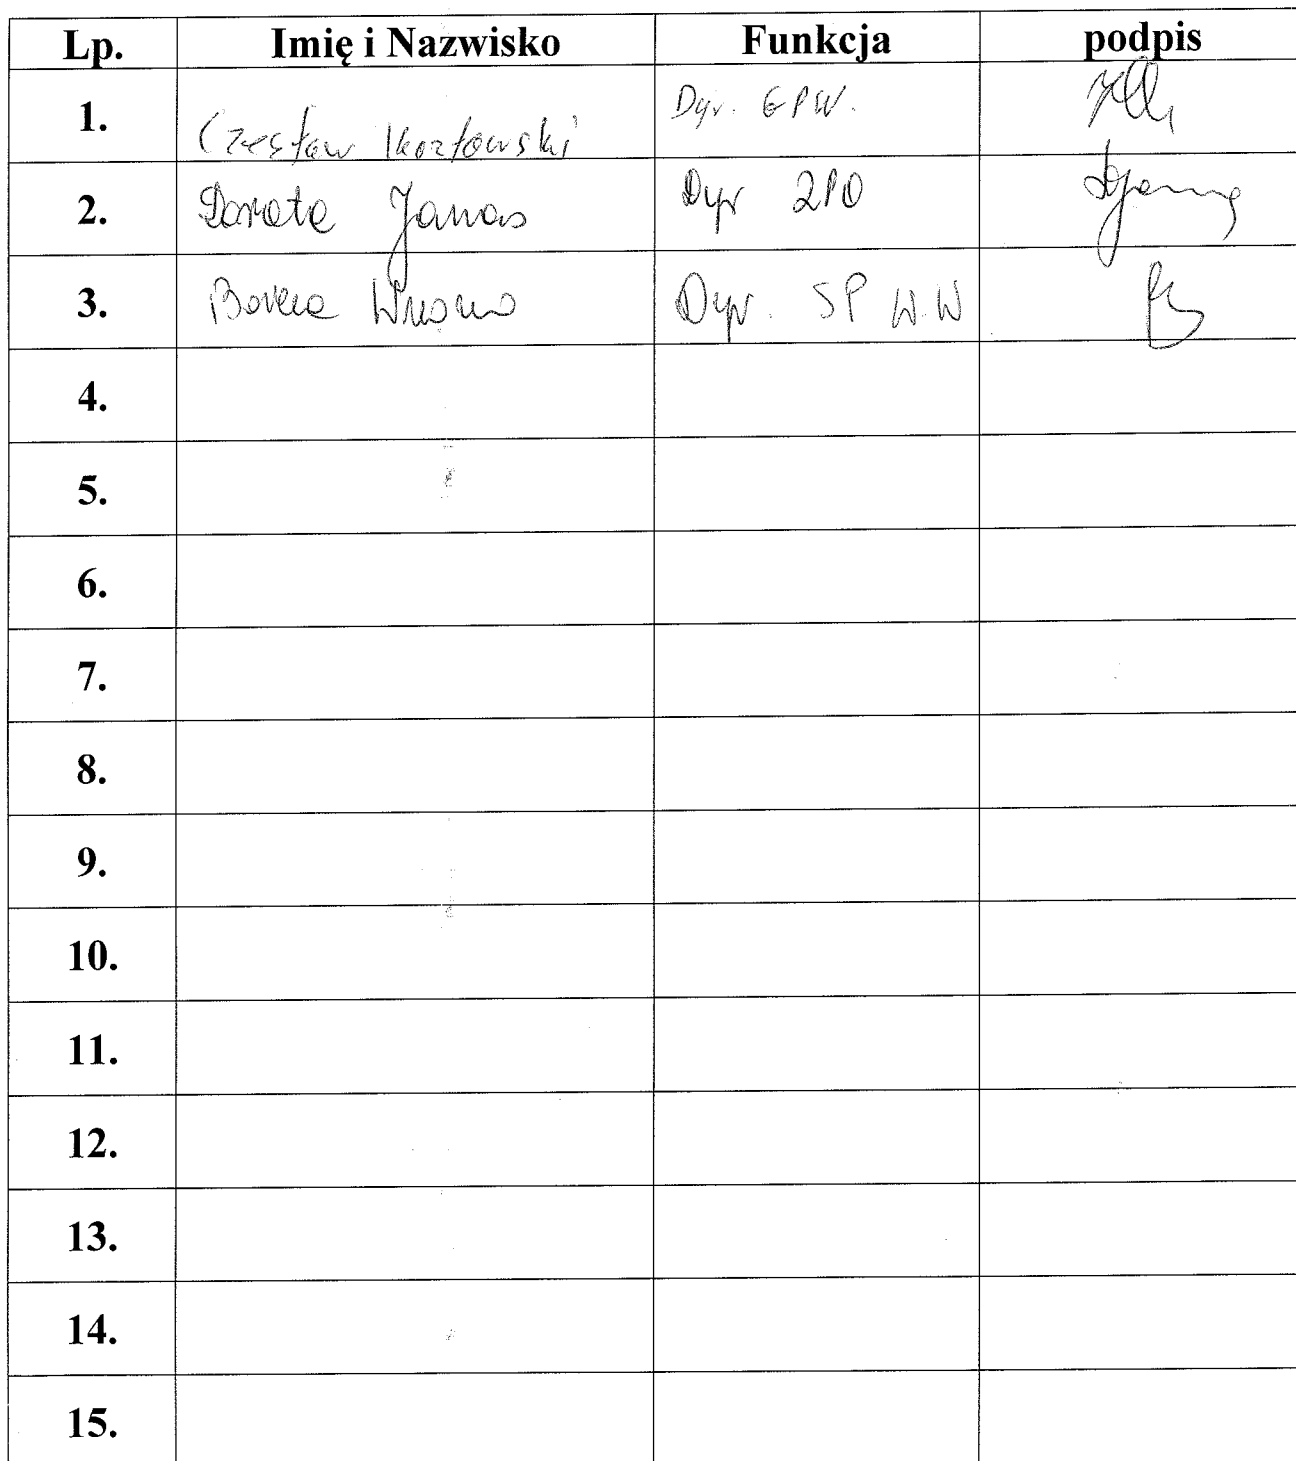 Lp. Imię i Nazwisko Funkcja podpis
1. Czesław Kozłowski Dyr. GPW.
2. Dorota Janas Dyr ZPO
3. Dyr. SP W.W
4.
5.
6.
7.
8.
9.
10.
11.
12.
13.
14.
15.